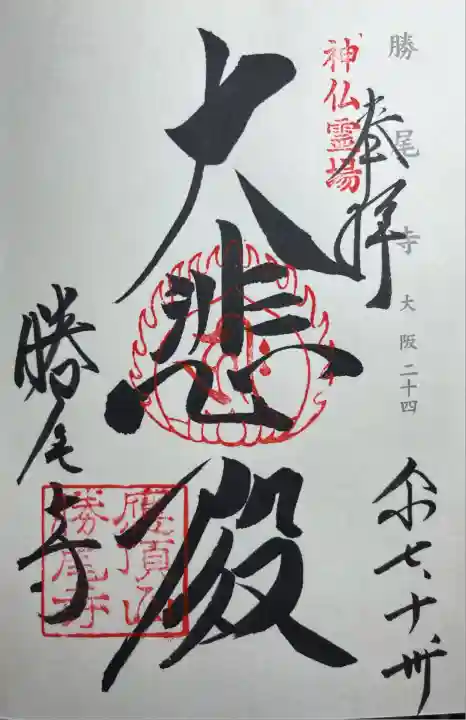 勝尾寺 大阪二十四
神仏霊場
奉拝
令七、十、卅
大悲殿
勝尾寺
應頂山
勝尾寺